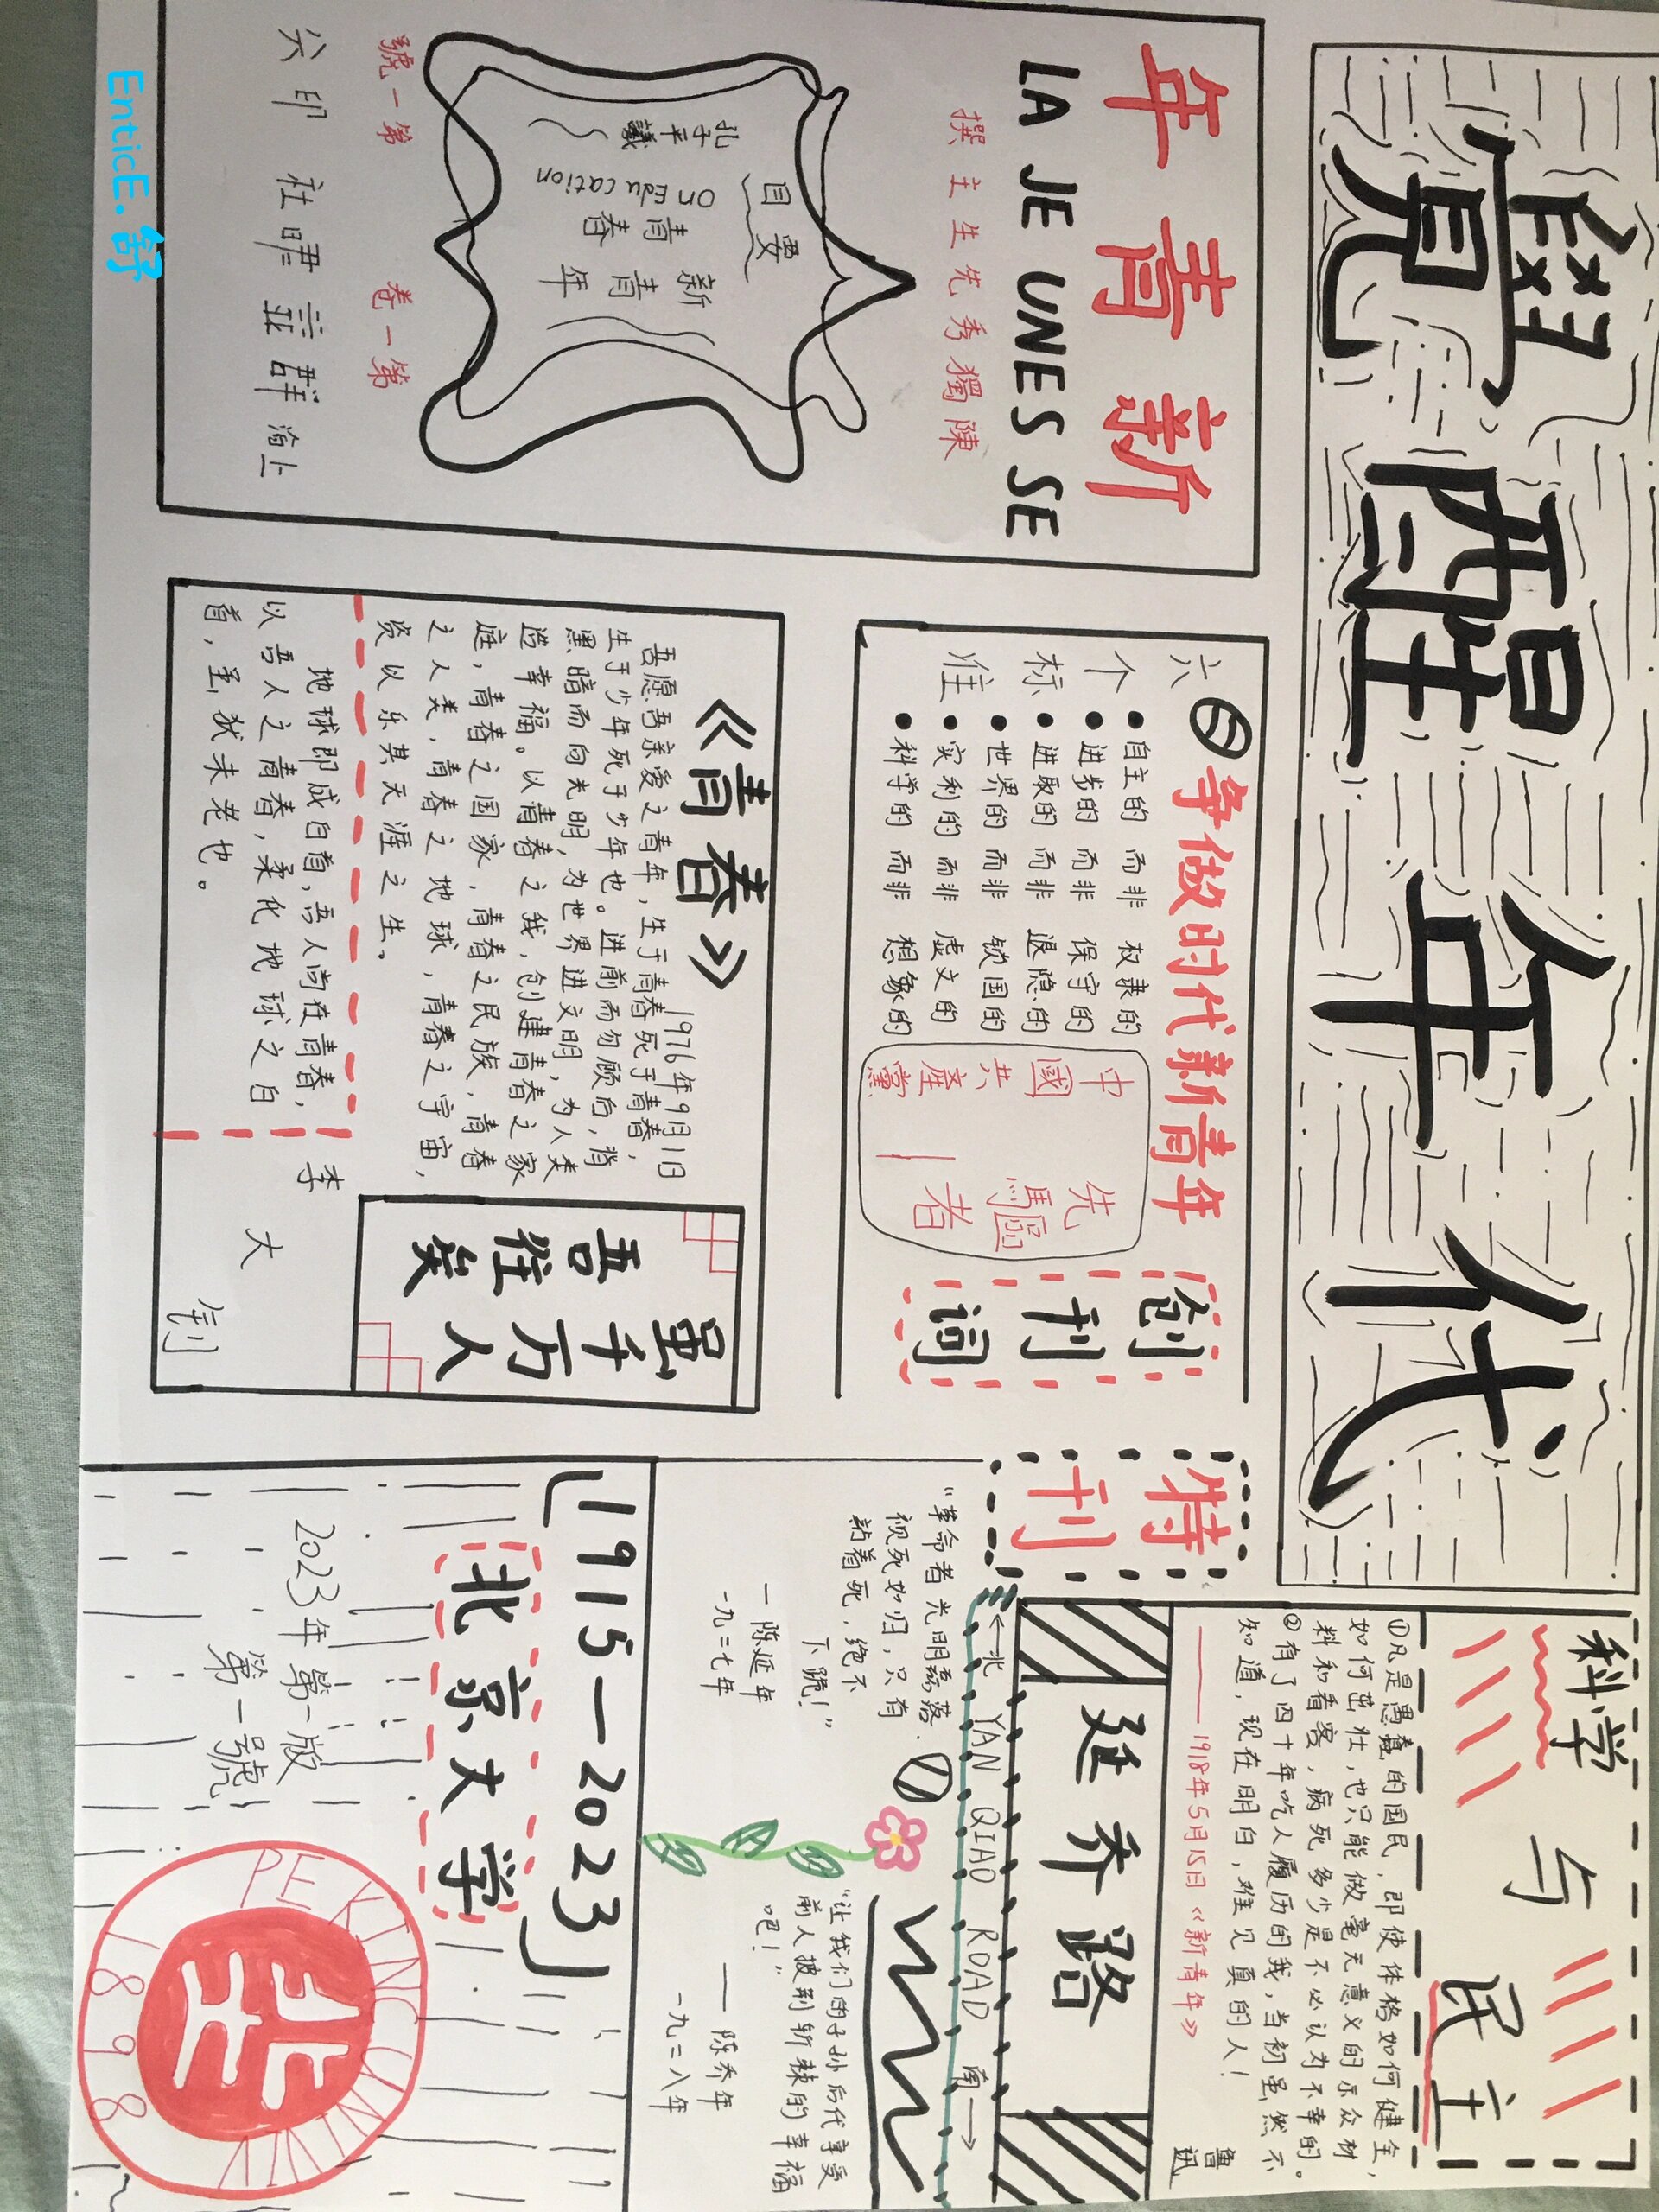 覺醒年代
年青新
LA JEUNESSE
撰主生先秀獨陳
目要
孔子平議
On Education
青春
新青年
號一第 卷一第
社 群 上
EnticE.舒
争做时代新青年
六个标准
自主的 而非 奴隶的
进步的 而非 保守的
进取的 而非 退隐的
世界的 而非 锁国的
实利的 而非 虚文的
科学的 而非 想象的
中國共產黨
先驅者
创刊词
特刊
《青春》
1976年9月1日
吾愿吾亲爱之青年,生于青春死于青春,
生于少年死于少年也。进前而勿顾后,背
黑暗而向光明,为世界进文明,为人类
造幸福。以青春之我,创建青春之家
庭,青春之国家,青春之民族,青春
之人类,青春之地球,青春之宇宙,
资以乐其天涯之生。
地球即成白首,吾人尚在青春,
以吾人之青春,柔化地球之白
首,虽犹未老也。
李大钊
虽千万人
吾往矣
科学与民主
①凡是愚蠢的国民,即使体格如何健全,
如何茁壮,也只能做毫无意义的示众材
料和看客,病死多少是不必认为不幸的。
②有了四十年吃人履历的我,当初虽然不
知道,现在明白,难见真的人!
——1918年5月15日《新青年》
鲁迅
延乔路
←北 YAN QIAO ROAD 南→
“革命者光明磊落、
视死如归,只有
站着死,绝不
下跪!”
一陈延年
一九二七年
“让我们的子孙后代享受
前人披荆斩棘的幸福
吧!”
——陈乔年
一九二八年
(1915—2023)
北京大学
2023年第一版
第一號
PEKING UNIV
1898